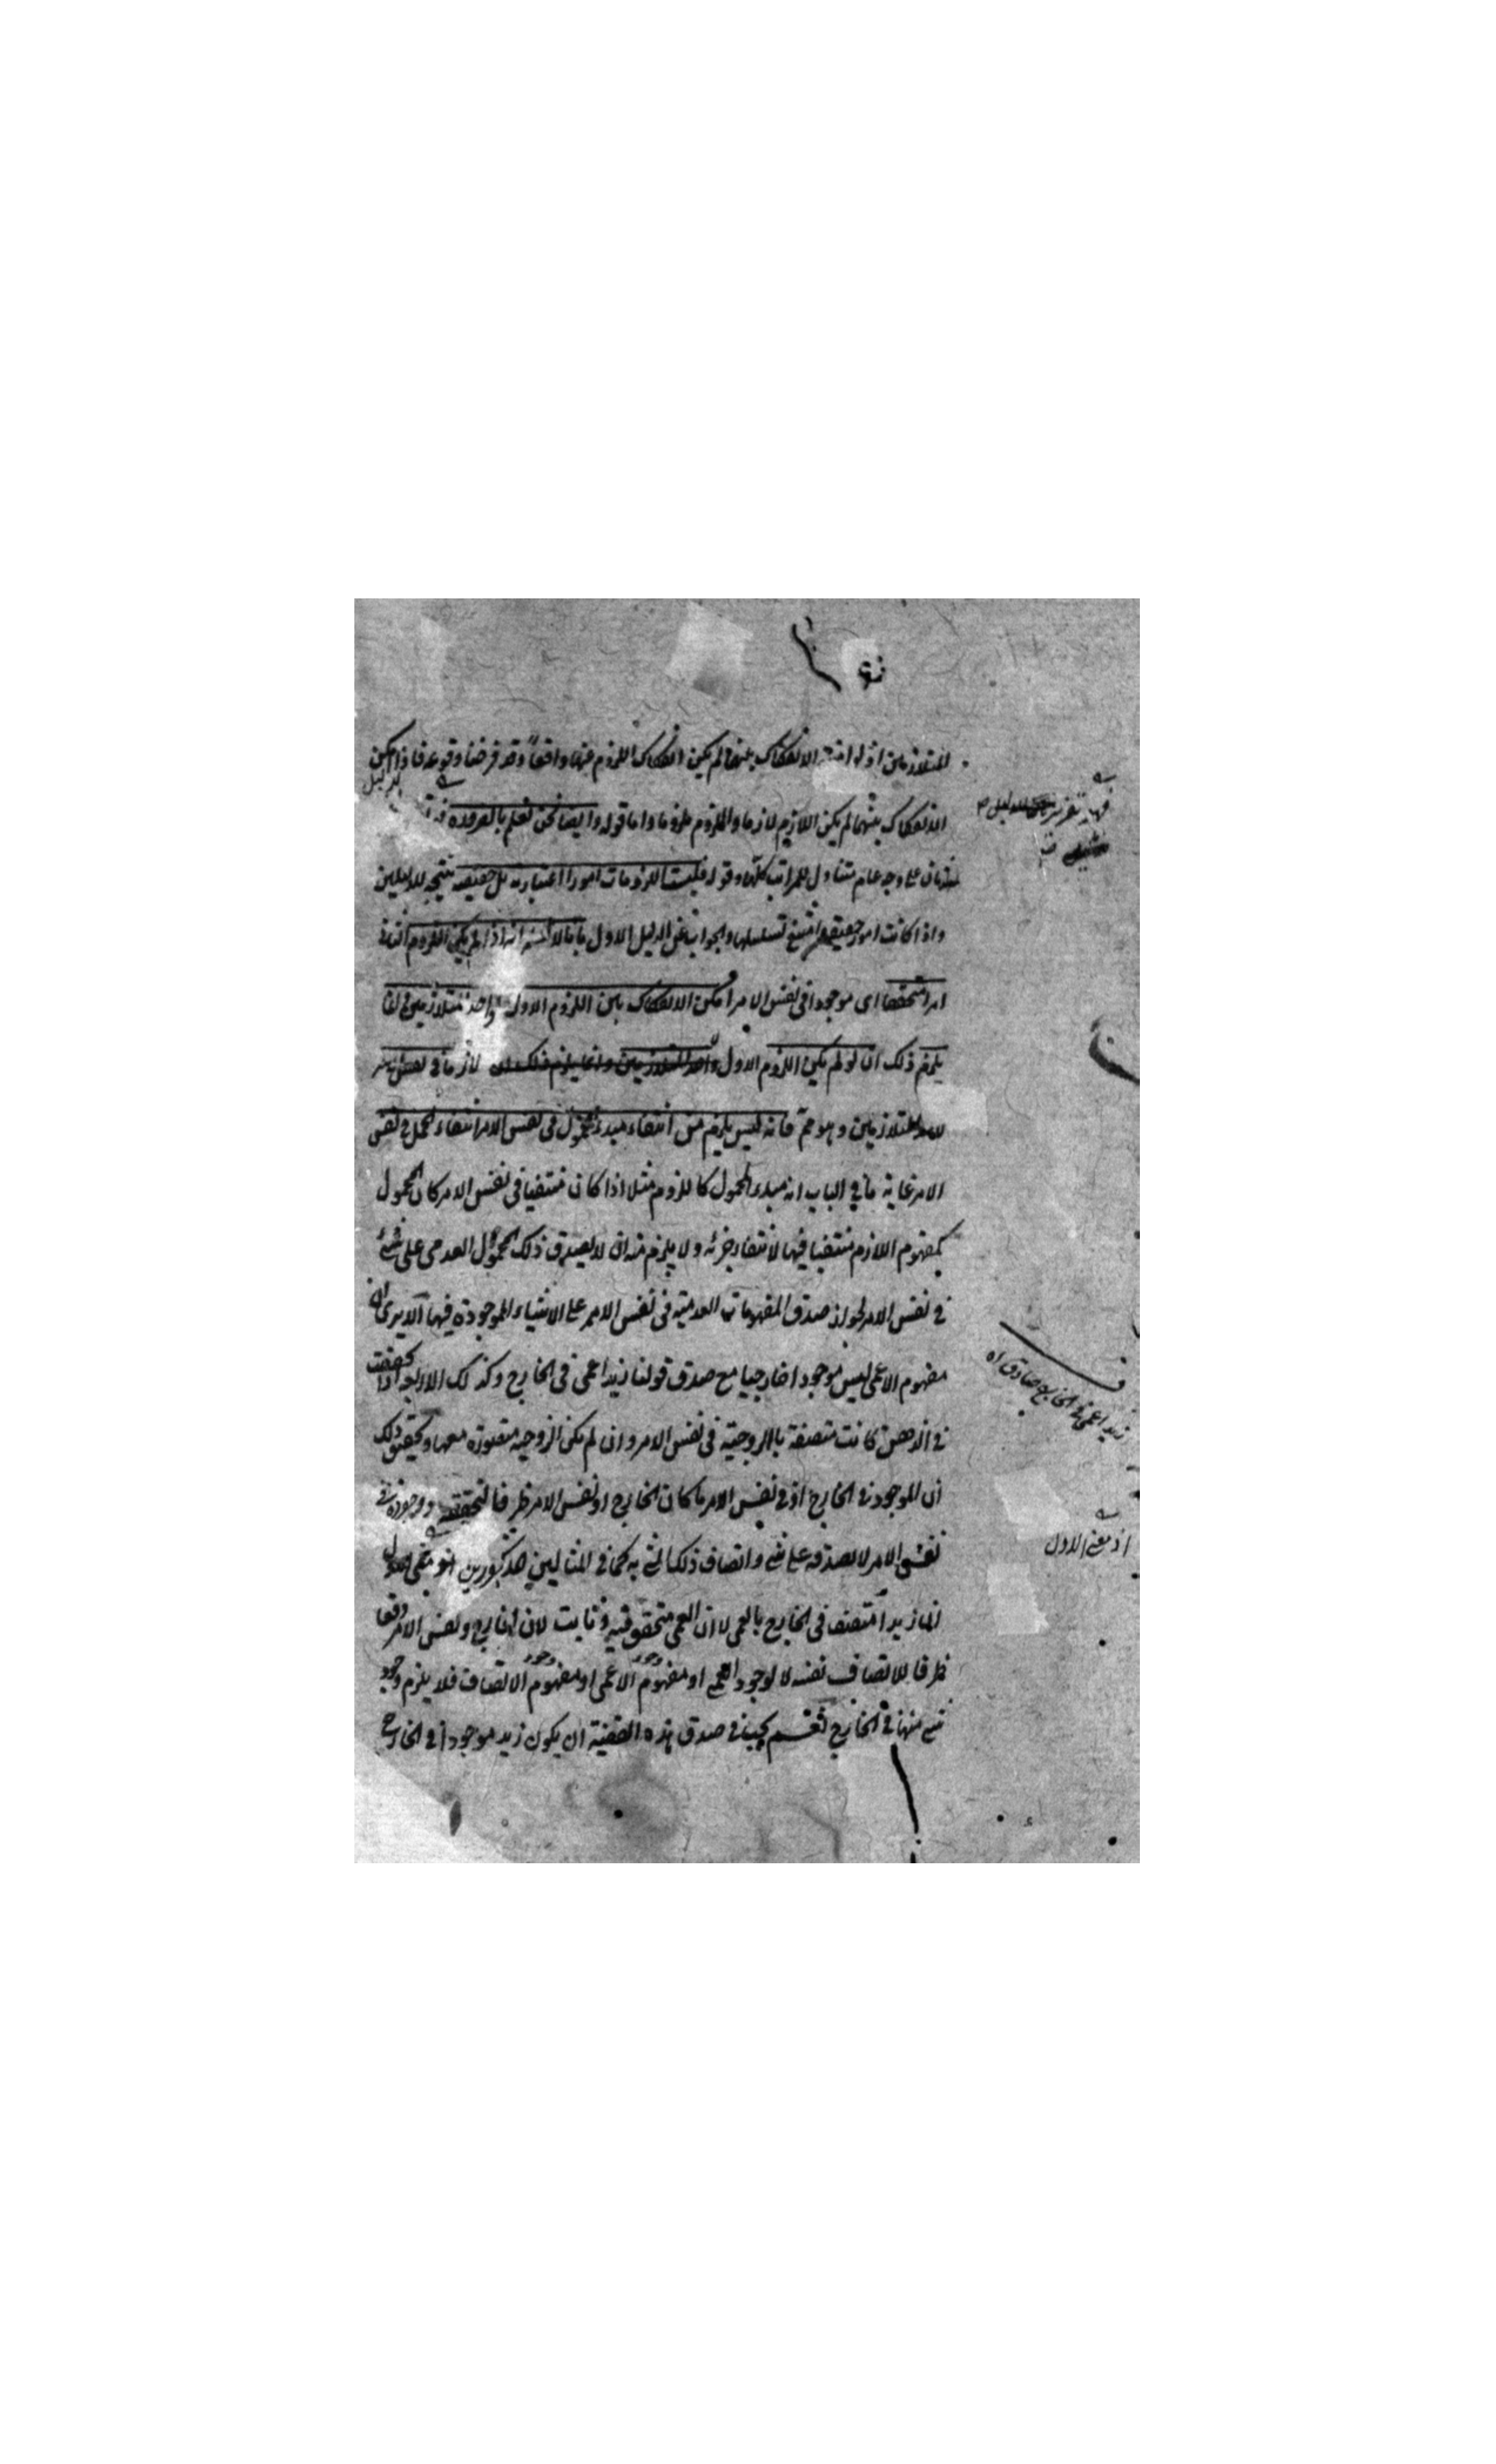 المتلازمين اذ لو امتنع الانفكاك بينهما لم يكن انفكاك اللزوم عنهما واقعاً وقد فرضنا وقوعه فاذا امكن
الانفكاك بينهما لم يكن اللازم لازما والملزوم ملزوما واما قوله وايضا نحن نعلم بالضرورة
على وجه عام متناول للمراتب كلها وقوله فليست اللزومات امورا اعتبارية بل حقيقية نتيجة للدليلين
واذا كانت امورا حقيقية امتنع تسلسلها والجواب عن الدليل الاول بانا لا نسلم انه اذا لم يكن اللزوم الثاني
امرا متحققا اى موجودا فى نفس الامر امكن الانفكاك بين اللزوم الاول واحد المتلازمين وانما
يلزم ذلك ان لو لم يكن اللزوم الاول لازما فى نفس الامر
لاحد المتلازمين وهو مم فانه ليس يلزم من انتفاء مبدء المحمول فى نفس الامر انتفاء الحمل فى نفس
الامر غاية ما فى الباب ان مبدء المحمول كاللزوم مثلا اذا كان منتفيا فى نفس الامر كان المحمول
كمفهوم اللازم منتفيا فيها لانتفاء جزئه ولا يلزم منه ان لا يصدق ذلك المحمول العدمى على شئ
فى نفس الامر لجواز صدق المفهومات العدمية فى نفس الامر على الاشياء الموجودة فيها الا يرى ان
مفهوم الاعمى ليس موجودا خارجيا مع صدق قولنا زيد اعمى فى الخارج وكذلك الاربعة اذا تحققت
فى الذهن كانت متصفة بالزوجية فى نفس الامر وان لم يكن الزوجية متصورة معها وتحقيق ذلك
ان الموجود فى الخارج او فى نفس الامر ما كان الخارج او نفس الامر ظرفا لتحققه ووجوده فى
نفس الامر لا لصدقه على شئ واتصاف ذلك الشئ به كما فى المثالين المذكورين
ان زيدا متصف فى الخارج بالعمى لا ان العمى متحقق فيه وثابت لان الخارج ونفس الامر وقعا
ظرفا للاتصاف نفسه لا لوجود العمى او مفهوم الاعمى او مفهوم الاتصاف فلا يلزم وجود
شئ منها فى الخارج نعم يجب فى صدق هذه القضية ان يكون زيد موجودا فى الخارج
زيد اعمى فى الخارج صادق اه
اذ معنى الاول